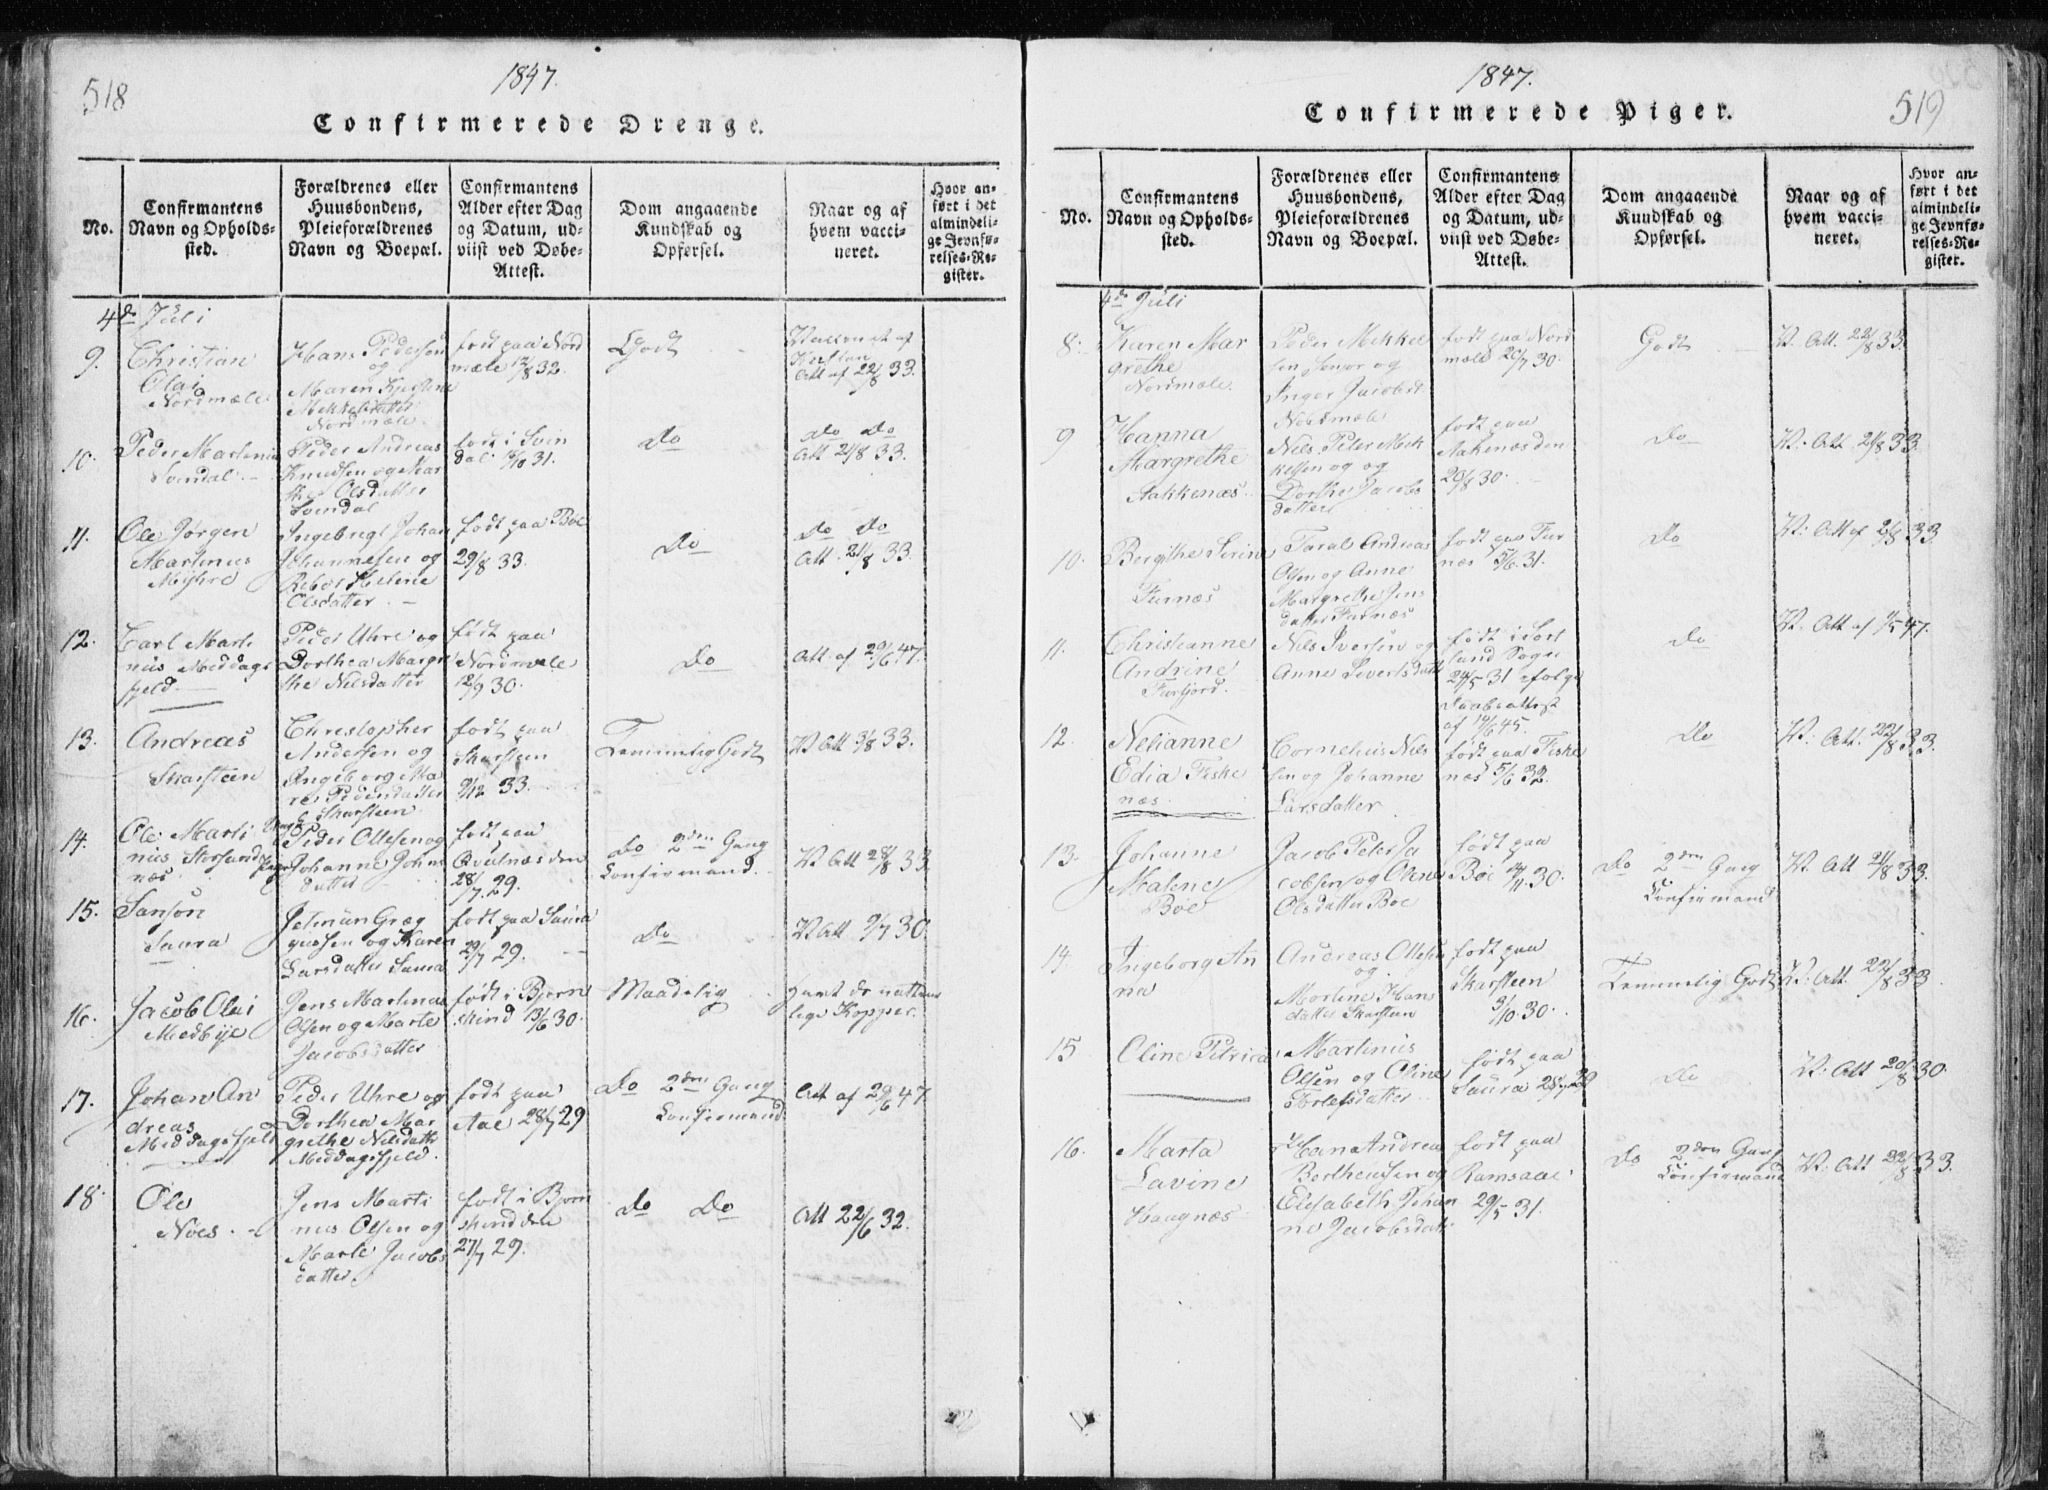 518
1847.
Confirmerede Drenge.
No.
Confirmantens
Navn og Opholds-
sted.
Forældrenes eller
Huusbondens,
Pleieforældrenes
Navn og Boepæl.
Confirmantens
Alder efter Dag
og Datum, ud-
viist ved Døbe-
Attest.
Dom angaaende
Kundskab og
Opførsel.
Naar og af
hvem vacci-
neret.
Hvor an-
ført i det
almindeli-
ge Jevnfø-
relses-Re-
gister.
4de Juli
9.
Christian
Olai
Nordmæle
Hans Pedersen
og
Maren Kjerstine
Mekkelsdatter
Nordmæle.
født paa Nord
mæle 12/8 32.
Godt
Att af 22/8 33.
10.
Peder Martinus
Svendal
Peder Andreas
Knudsen og Mar
the Olsdatter
Svendal
født i Svin
dal 15/10 31.
Do
Do Do
Att 21/8 33.
11.
Ole Jørgen
Martinus
Myhre
Ingebrigt Johan
Johannesen og
Helene
Olsdatter
født paa Böe
29/8 33.
Do
Do Do
Att. 21/8 33.
12.
Carl Marti
nus Meddags
fjeld
Peder Uhre og
Dorthea Margr
the Nielsdatter
født paa
Nordmæle
12/9 30.
Do
Att af 29/6 47.
13.
Andreas
Skarsteen
Christopher
Andersen og
Ingeborg Ma
re Pedersdatter
Skarsteen
født paa
Skarsteen
9/12 33.
Temmelig Godt
V. Att 3/8 33.
14.
Ole Marti
nus Storsand
næs
Peder Ottesen og
Johanne Johns
datter
født paa
Qvalnæs den
28/7 29.
Do 2den Gang
Confirmand.
V. Att 28/8 33
15.
Sansón
Saura
Jetmun Greg
gussen og Karen
Larsdatter Saura
født paa Saura
29/7 29.
Do
V. Att 9/7 30
16.
Jacob Olai
Medbye
Jens Martinus
Olsen og Marte
Jacobsdatter
født i Bjørn
skind 13/6 30.
Maadelig
havt de nattur
lige Kopper.
17.
Johan An
dreas
Meddagsfjeld
Peder Uhre og
Dorthea Mar
grethe Nilsdatt
Meddagsfjeld.
født paa
Aae 28/7 29
Do 2den Gang
Confirmand
Att af 29/6 47.
18.
Ole
Nöes
Jens Marti
nus Olsen og
Marte Jacobs
datter
født i Bjørn
skind den
27/7 29.
Do Do
Att 22/6 32.
1847.
519
Confirmerede Piger.
No.
Confirmantens
Navn og Opholds-
sted.
Forældrenes eller
Huusbondens,
Pleieforældrenes
Navn og Boepæl.
Confirmantens
Alder efter Dag
og Datum, ud-
viist ved Døbe-
Attest.
Dom angaaende
Kundskab og
Opførsel.
Naar og af
hvem vacci-
neret.
Hvor an-
ført i det
almindeli-
ge Jevnfø-
relses-Re-
gister.
4de Juli
8.
Karen Mar
grethe
Nordmæle.
Peder Mekkel
sen Senior og
Inger Jacobsdt
Nordmæle
født paa Nord
mæle 20/7 30.
Godt
V. Att. 22/8 33.
9
Hanna
Margrethe
Aakkenæs.
Niels Peter Mek
kelsen og og
Dorthe Jacobs
datter
født paa
Aakenæs den
20/8 30.
Do
V: Att 21/8 33.
10.
Bergithe Serine
Furnæs
Taral Andreas
Olsen og Anne
Margrethe Jens
datter Furnæs
født paa Fur
næs 5/6 31.
Do
V. Att af 21/8 33
11.
Christianne
Andrine
Furfjord.
Niels Iversen og
Anne Sivertsdatt
født i Sort
land Sogn
24/5 31 efolge
Daabsattest
af 14/6 45.
Do
V. Att af 1/5 47.
12.
Nelianne
Edia Fiske
næs
Cornelius Niels
sen og Johanne
Larsdatter
født paa Fiske
næs 5/6 32.
Do
V: Att. 22/8 33.
13.
Johanne
Malene
Böe
Jacob Peter Ja
cobsen og Oline
Olsdatter Böe
født paa
Böe 14/11 30.
Do 2den Gang
Confirmand
V. Att 21/8 33.
14.
Ingeborg An
na
Andreas Ottesen
og
Martine Hans
datter Skarsteen
født paa
Skarsteen
3/10 30.
Temmelig Godt
V: Att 22/8 33.
15
Oline Petrica
Martinus
Olsen og Oline
Torlefsdatter
født paa
Saura 28/7 29
Do
V: Att 20/8 30.
16.
Marta
Lavine
Haugnæs
Hans Andrea
Bertheussen og
Elisabeth Johan
ne Jacobsdatt
født paa
Ramsaae
29/5 31.
Do 2den Gang
Confirmand
V: Att 22/8 33.